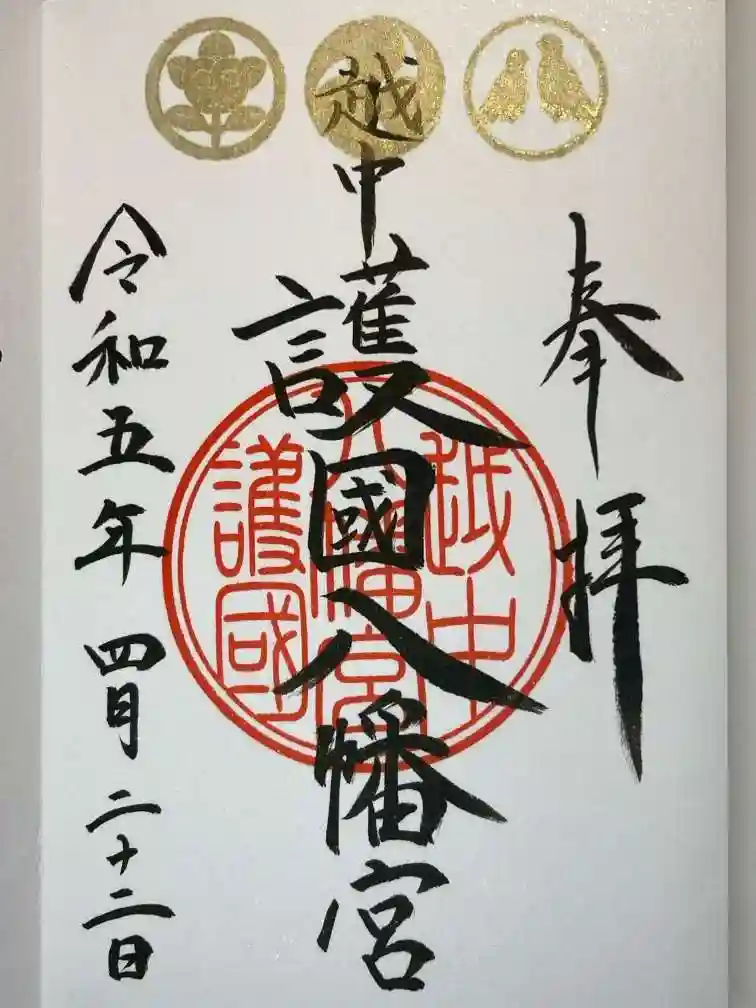 奉拝
越中
護國八幡宮
越中
八幡宮
護國
令和五年四月二十二日